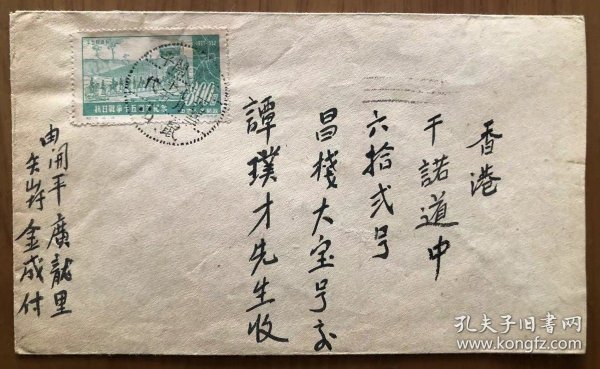 香港
干諾道中
六拾弍号
昌棧大宝号交
譚璞才先生收
由開平廣龍里
金成付
抗日战争十五周年纪念
800
孔夫子旧书网
www.kongfz.com